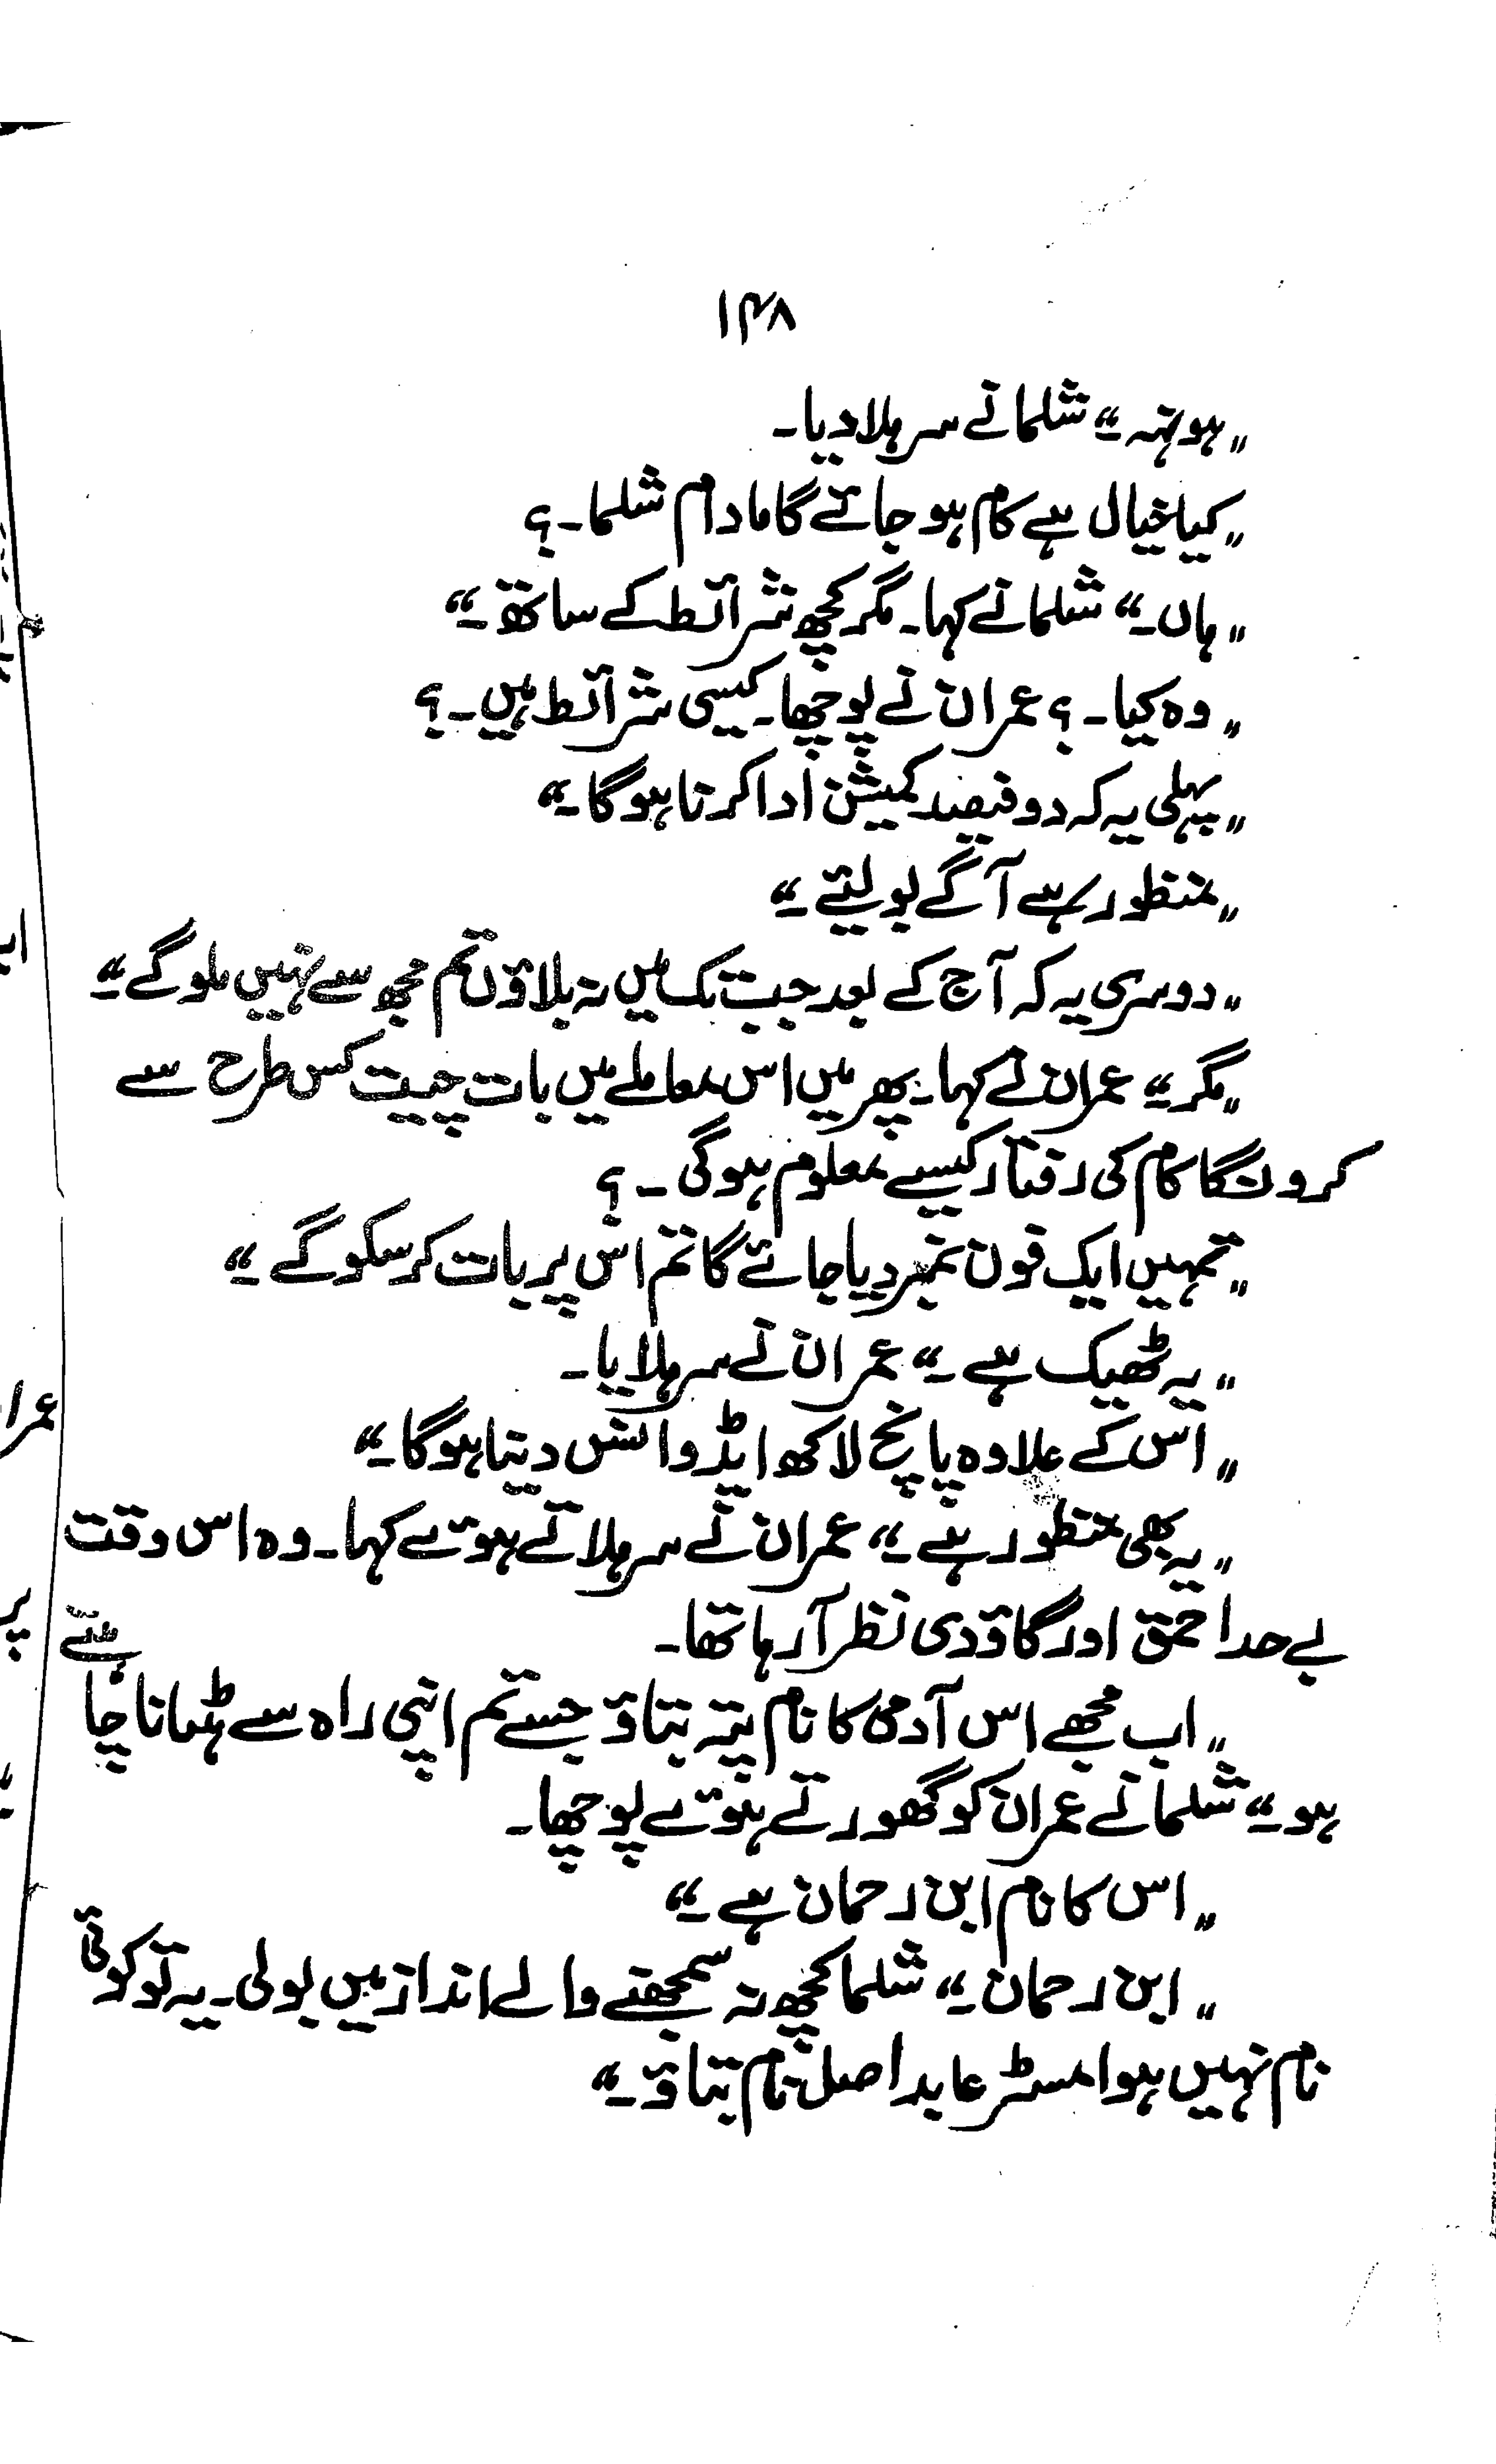 ۱۴۸
"ہونہہ۔" شلمانے سر ہلا دیا۔
"کیا خیال ہے کام ہو جائے گا مادام شلما۔؟
"ہاں۔" شلمانے کہا۔ مگر کچھ شرائط کے ساتھ۔"
"وہ کیا۔؟ عمران نے پوچھا۔ کیسی شرائط ہیں۔؟
"پہلی یہ کہ دو فیصد کمیشن ادا کرنا ہو گا۔"
"منظور ہے آگے بولیئے۔"
"دوسری یہ کہ آج کے بعد جب تک میں نہ بلاؤں تم مجھ سے نہیں ملو گے۔"
"مگر۔" عمران نے کہا۔ پھر میں اس معاملے میں بات چیت کس طرح سے
کروں گا کام کی رفتار کیسے معلوم ہو گی۔؟
"تمہیں ایک فون نمبر دیا جائے گا تم اس پر بات کر سکو گے۔"
"یہ ٹھیک ہے۔" عمران نے سر ہلایا۔
"اس کے علاوہ پانچ لاکھ ایڈوانس دینا ہو گا۔"
"یہ بھی منظور ہے۔" عمران نے سر ہلاتے ہوئے کہا۔ وہ اس وقت
بے حد احمق اور گاؤدی نظر آ رہا تھا۔
"اب مجھے اس آدمی کا نام پتہ بتاؤ جسے تم اپنی راہ سے ہٹانا چا ہتے
ہو۔" شلمانے عمران کو گھورتے ہوئے پوچھا۔
"اس کا نام ابن رحمان ہے۔"
"ابن رحمان۔" شلما کچھ نہ سمجھنے والے انداز میں بولی۔ یہ تو کوئی
نام نہیں ہوا مسٹر عابد اصل نام بتاؤ۔"